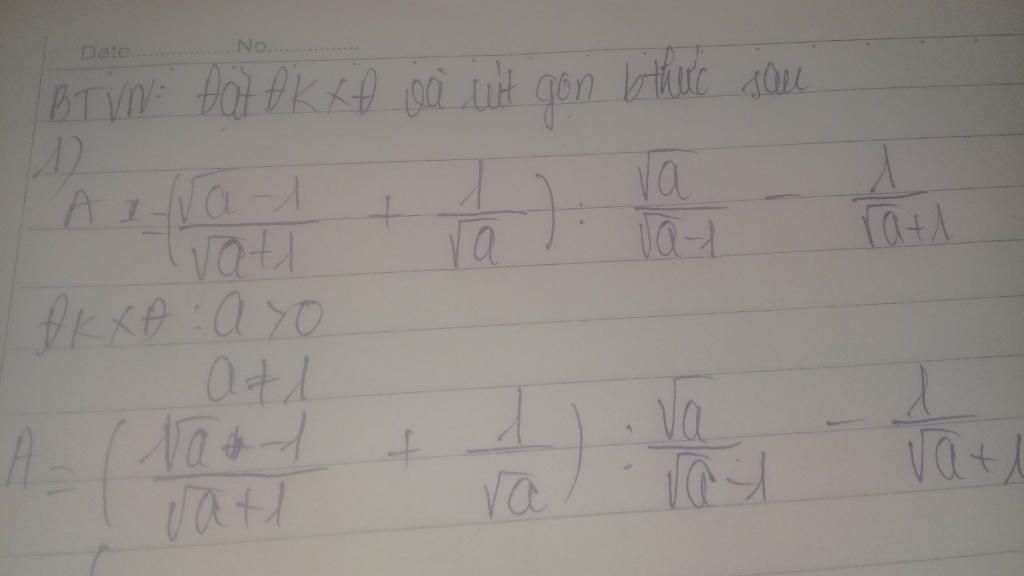 Date............... No...............
BTVN: Đặt ĐKXĐ và rút gọn bthức sau
1)
A = (√a-1/√a+1 + 1/√a) : √a/√a-1 - 1/√a+1
ĐKXĐ : a>0
a≠1
A = (√a-1/√a+1 + 1/√a) : √a/√a-1 - 1/√a+1
(